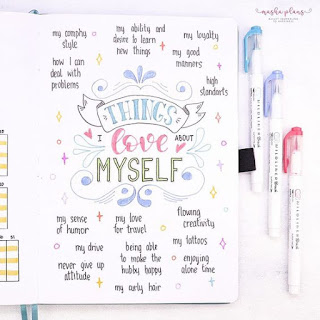 masha plans
my comphy
style
my ability and
desire to learn
new things
my loyalty
how I can
deal with
problems
my good
manners
high
standarts
THINGS
I love ABOUT
MYSELF
my sense
of humor
my love
for travel
flowing
creativity
my drive
being able
to make the
hubby happy
my tattoos
never give up
attitude
enjoying
alone time
my curly hair
MILDLINER Brush
MILDLINER Brush
MILDLINER Brush